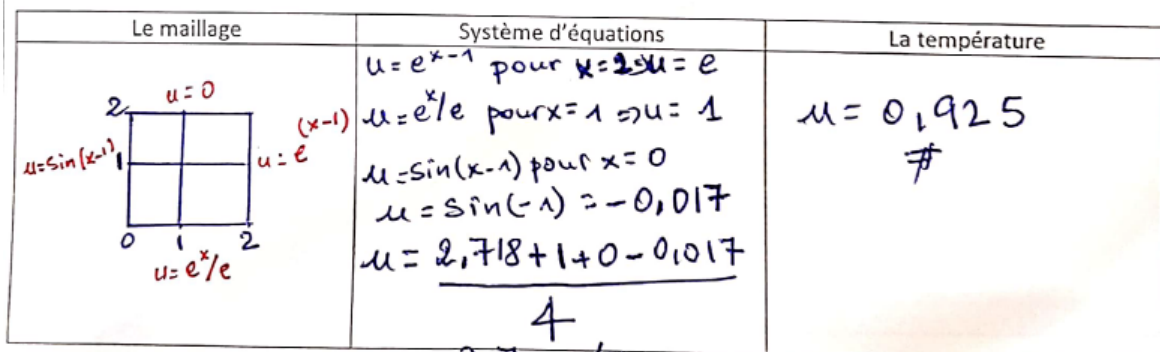 Le maillage
Système d'équations
La température
u = 0
2
u = sin(x-1)
1
(x-1)
u = e
0 1 2
u = e^x/e
u = e^x-1 pour x = 2 => u = e
u = e^x/e pour x = 1 => u = 1
u = sin(x-1) pour x = 0
u = sin(-1) = -0,017
u = 2,718 + 1 + 0 - 0,017
4
u = 0,925